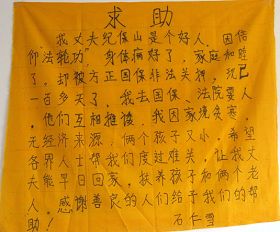 求助
我丈夫纪保山是个好人，因信
仰法轮功，身体病好了，家庭和睦
了，却被方正国保非法关押，现已
一百多天了，我去国保、法院要人
，他们互相推诿。我因家境贫寒，
无经济来源，两个孩子又小，希望
各界人士帮我们度过难关，让我丈
夫能早日回家，扶养孩子和两个老
人。感谢善良的人们给予我们的帮
助！ 石仁雪